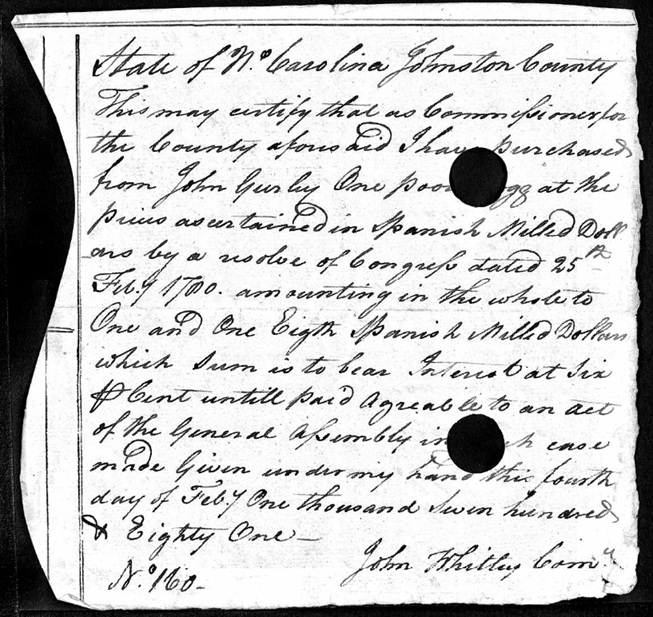 State of No. Carolina Johnston County
This may certify that as Commissioner for
the County aforesaid I have purchased
from John Gurley One poor at the
prices ascertained in Spanish Milled Doll
ars by a resolve of Congress dated 25th
Feby 1780. amounting in the whole to
One and One Eigth Spanish Milled Dollars
which Sum is to bear Interest at Six
℔ Cent untill paid Agreable to an act
of the General Assembly in case
made Given under my hand this fourth
day of Feby One thousand Seven hundred
& Eighty One —
John Whitley Comr
No. 160 -